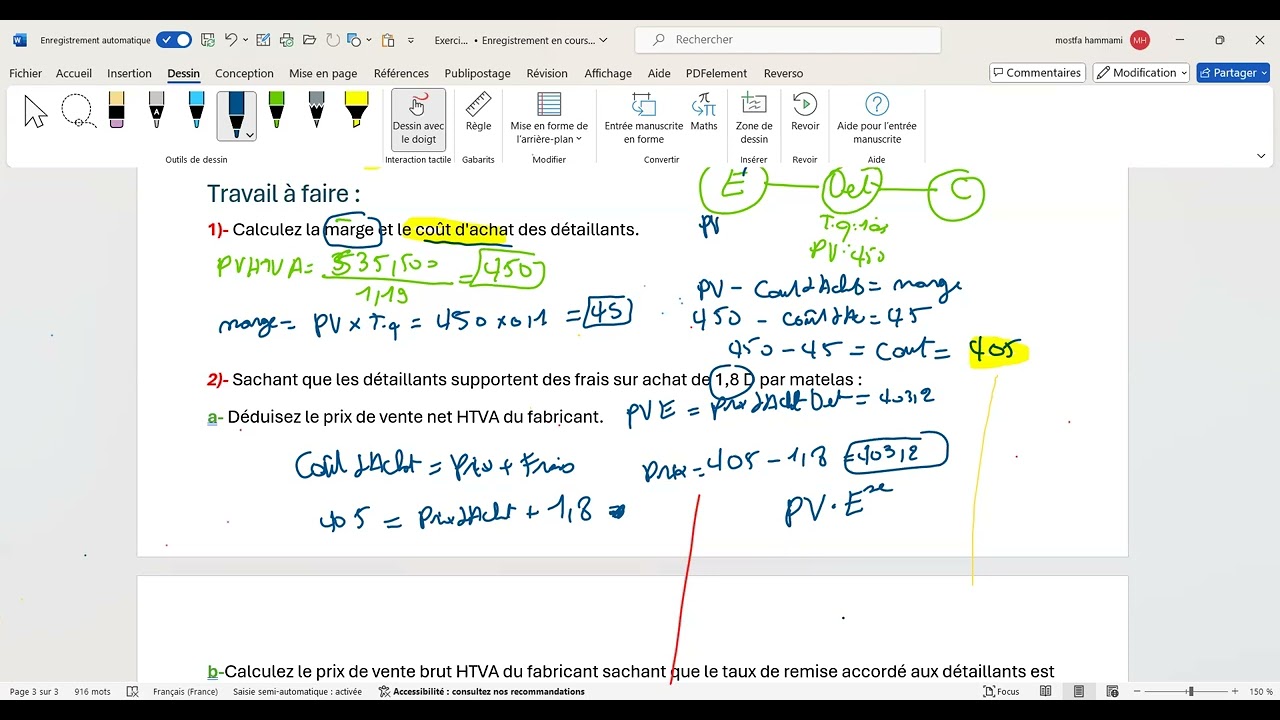 Enregistrement automatique Exerci... • Enregistrement en cours... Rechercher mostfa hammami MH
Fichier Accueil Insertion Dessin Conception Mise en page Références Publipostage Révision Affichage Aide PDFelement Reverso Commentaires Modification Partager
Dessin avec le doigt Règle Mise en forme de l'arrière-plan Entrée manuscrite en forme Maths Zone de dessin Revoir Aide pour l'entrée manuscrite
Outils de dessin Interaction tactile Gabarits Modifier Convertir Insérer Revoir Aide
E Det C
Travail à faire :
PV
1)- Calculez la marge et le coût d'achat des détaillants.
PV: 450
PVHTVA = 535,500 / 1,19 = 450
PV - Cout d'Achat = marge
marge = PV x T.q = 450 x 0,1 = 45
450 - coût d'Ac = 45
450 - 45 = Cout = 405
2)- Sachant que les détaillants supportent des frais sur achat de 1,8 D par matelas :
a- Déduisez le prix de vente net HTVA du fabricant.
PVE = Prix d'Achat Det = 403,2
Coût d'Achat = Prix + Frais
Prix = 405 - 1,8 = 403,2
405 = Prix d'Achat + 1,8
PV. Ese
b-Calculez le prix de vente brut HTVA du fabricant sachant que le taux de remise accordé aux détaillants est
Page 3 sur 3 916 mots Français (France) Saisie semi-automatique : activée Accessibilité : consultez nos recommandations Focus 150 %